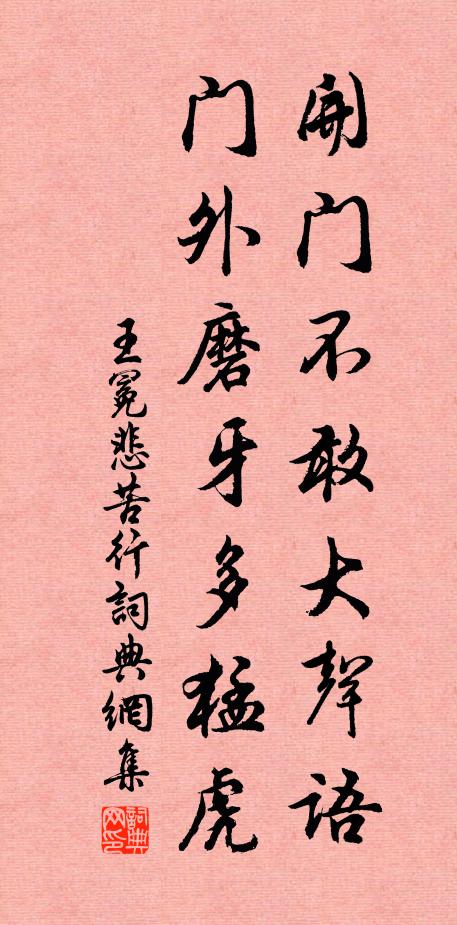 開门不敢大聲語
门外磨牙多猛虎
王冕悲苦行詞典網集
詞典网印